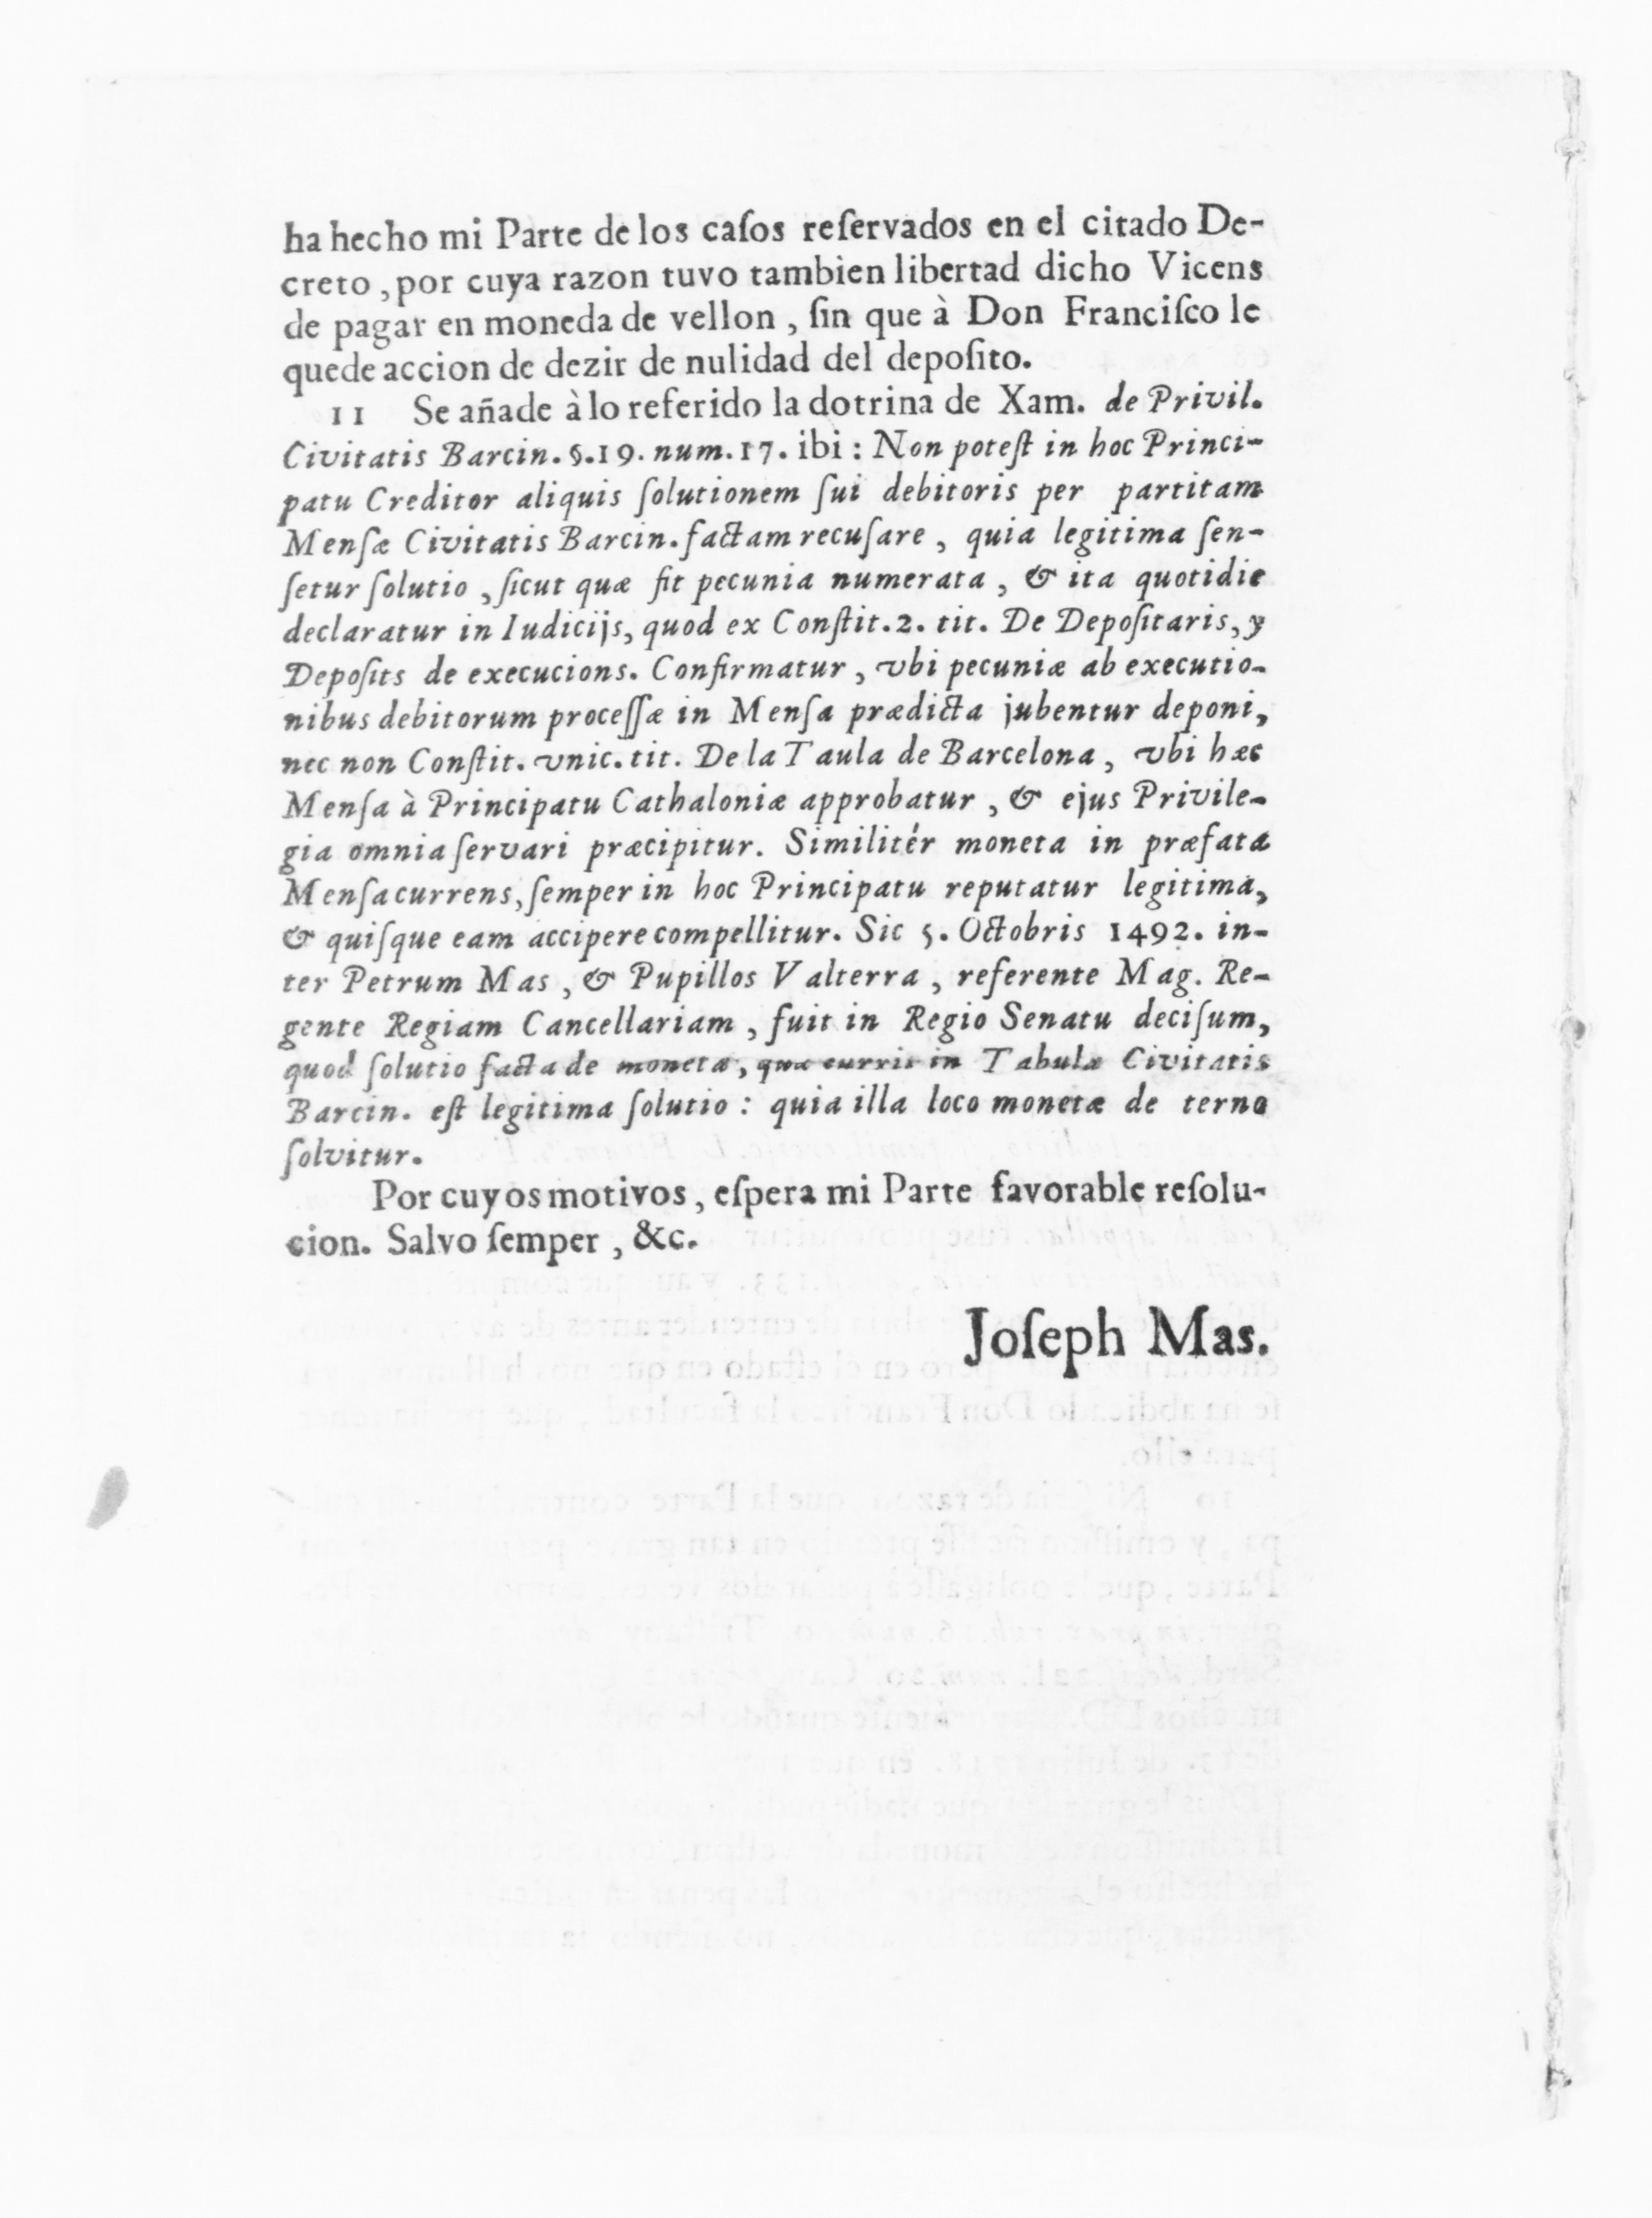 ha hecho mi Parte de los caſos reſervados en el citado De-
creto , por cuya razon tuvo tambien libertad dicho Vicens
de pagar en moneda de vellon , ſin que à Don Franciſco le
quede accion de dezir de nulidad del depoſito.
11 Se añade à lo referido la dotrina de Xam. de Privil.
Civitatis Barcin. §.19. num.17. ibi : Non poteſt in hoc Princi-
patu Creditor aliquis ſolutionem ſui debitoris per partitam
Menſæ Civitatis Barcin. factam recuſare , quia legitima ſen-
ſetur ſolutio , ſicut quæ fit pecunia numerata , & ita quotidie
declaratur in Iudicijs, quod ex Conſtit.2. tit. De Depoſitaris, y
Depoſits de execucions. Confirmatur , vbi pecuniæ ab executio-
nibus debitorum proceſſæ in Menſa prædicta jubentur deponi,
nec non Conſtit. vnic. tit. De la Taula de Barcelona , vbi hæc
Menſa à Principatu Cathaloniæ approbatur , & ejus Privile-
gia omnia ſervari præcipitur. Similitér moneta in præfata
Menſa currens, ſemper in hoc Principatu reputatur legitima,
& quiſque eam accipere compellitur. Sic 5. Octobris 1492. in-
ter Petrum Mas , & Pupillos Valterra , referente Mag. Re-
gente Regiam Cancellariam , fuit in Regio Senatu deciſum,
quod ſolutio facta de moneta, quæ currit in Tabula Civitatis
Barcin. eſt legitima ſolutio : quia illa loco monetæ de terno
ſolvitur.
Por cuyos motivos , eſpera mi Parte favorable reſolu-
cion. Salvo ſemper , &c.
Joſeph Mas.